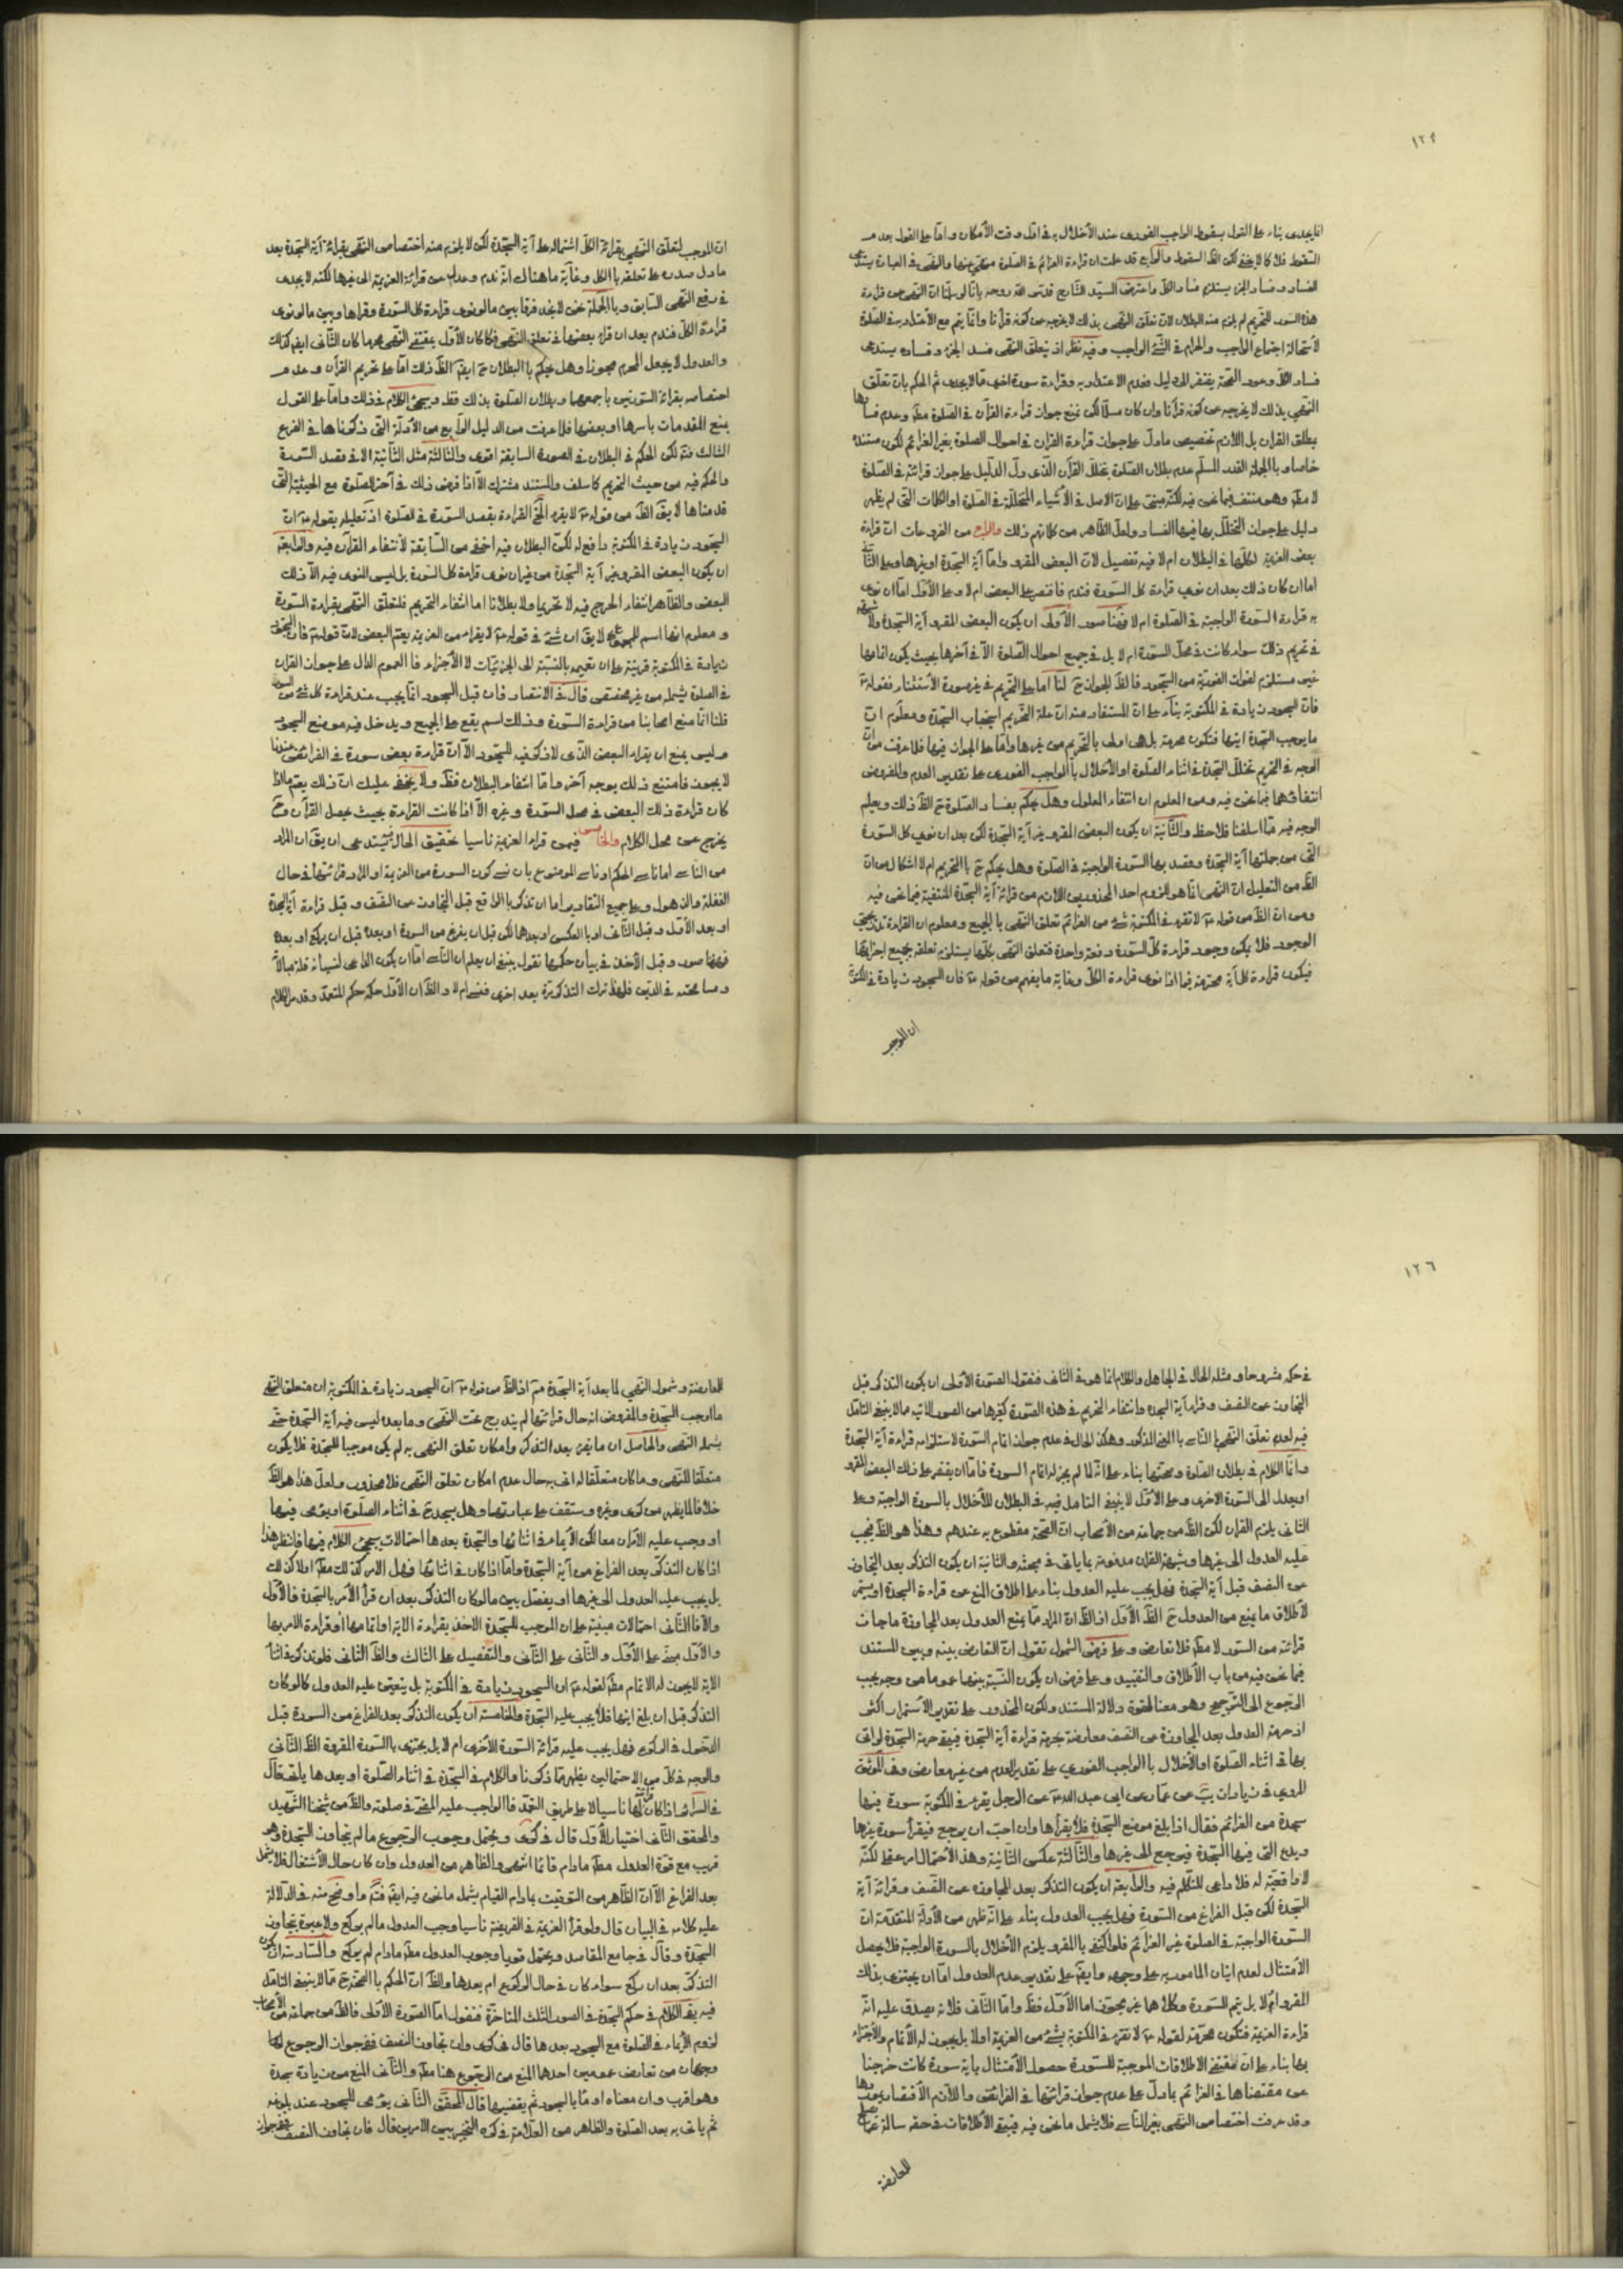 ١٢٩
انما يجدى بناء على القول بسقوط الواجب الفورى عند الأخلال به فى اول وقت الأمكان واما على القول بعدم
السقوط فلا كما لا يخفى لكن الظ السقوط والرابع قد علمت ان قراءة العزائم فى الصلوة منهى عنها والنهى فى العبادة يستدعى
الفساد وفساد الجزء يستلزم فساد الكل واعترض السيد الشارح قدس الله روحه بانا لو سلمنا ان النهى عن قراءة
هذه السور للتحريم لم يلزم منه البطلان لان تعلق النهى بذلك لا يخرجه عن كونه قرآنا وانما يتم مع الأعتداد به فى الصلوة
لأستحالة اجتماع الواجب والحرام فى الشئ الواجب وفيه نظر اذ بتعلق النهى فسد الجزء وفساده يستدعى
فساد الكل وعود الصحة يفتقر الى دليل فعدم الاعتداد به وقراءة سورة اخرى مما لا يجدى ثم الحكم بان تعلق
النهى بذلك لا يخرجه عن كونه قرآنا وان كان مسلما لكن نمنع جواز قراءة القرآن فى الصلوة مط وعدم فسادها
بمطلق القران بل اللازم تخصيص ما دل على جواز قراءة القران فى احوال الصلوة بغير العزائم لكون مستنده
خاصا وبالجملة القدر المسلم عدم بطلان الصلوة بتخلل القرآن الذى دل الدليل على جواز قرائته فى الصلوة
لا مط وهو منتف فيما نحن فيه لكنه مبنى على ان الاصل فى الأشياء المتخللة فى الصلوة او الكلمات التى لم يظهر
دليل على جواز التخلل بها فيها الفساد ولعل الظاهر من كلامهم ذلك والرابع من الفروعات ان قراءة
بعض العزيمة ككلها فى البطلان ام لا فيه تفصيل لان البعض المقرو اما آية السجدة او غيرها وعلى الثانى
اما ان كان ذلك بعد ان نوى قراءة كل السورة فندم فاقتصر على البعض ام لا وعلى الأول اما ان نوى
به قراءة السورة الواجبة فى الصلوة ام لا فهنا صور الأولى ان يكون البعض المقرو آية السجدة ولا شبهة
فى تحريم ذلك سواء كانت فى محل السورة ام لا بل فى جميع احوال الصلوة الا فى آخرها بحيث يكون اتمامها
غير مستلزم لفوات الفورية من السجود فالظ الجواز ح لنا اما على التحريم فى غير صورة الأستثناء فقوله ع
فان السجود زيادة فى المكتوبة بناء على ان المستفاد منه ان علة التحريم استيجاب السجدة ومعلوم ان
ما يوجب السجدة ايتها فتكون محرمة بل هى اولى بالتحريم من غيرها واما على الجواز فيها فلما عرفت من ان
الوجه فى التحريم تخلل السجدة فى اثناء الصلوة او الأخلال بالواجب الفورى على تقدير العدم والمفروض
انتفاؤهما فيما نحن فيه ومن المعلوم ان انتفاء المعلول وهل يحكم بفساد الصلوة ح الظ ذلك ويعلم
الوجه فيه مما اسلفنا فلاحظ والثانية ان يكون البعض المقرو غير آية السجدة لكن بعد ان نوى كل السورة
التى من جملتها آية السجدة وقصد بها السورة الواجبة فى الصلوة وهل يحكم ح بالتحريم ام لا اشكال من ان
الظ من التعليل ان النهى انما هو للزوم احد المحذورين اللازم من قرائة آية السجدة المنتفية فيما نحن فيه
ومن ان الظ من قوله ع لا تقرء فى المكتوبة بشئ من العزائم تعلق النهى بالجميع ومعلوم ان القراءة تدريجى
الوجود فلا يمكن وجود قراءة كل السورة دفعة واحدة فتعلق النهى بكلها يستلزم تعلقه بجميع اجزائها
فيكون قراءة كل آية محرمة فيما اذا نوى قراءة الكل وغاية ما يفهم من قوله ع فان السجود زيادة فى المكتوبة
ان الموجب
ان الموجب لتعلق النهى بقرائة الكل اشتماله على آية السجدة لكن لا يلزم منه اختصاص النهى بقرائة آية السجدة بعد
ما دل صدره على تعلقه بالكل وغاية ما هناك انه ندم وعدل عن قرائة العزيمة الى غيرها لكنه لا يجدى
فى رفع النهى السابق وبالجملة نحن لا نجد فرقا بين ما لو نوى قراءة كل السورة وقراها وبين ما لو نوى
قراءة الكل فندم بعد ان قراء بعضها فى تعلق النهى فكما كان الأول بمقتضى النهى محرما كان الثانى ايضا كذلك
والعدول لا يجعل المحرم مجوزا وهل يحكم بالبطلان ح ايضا الظ ذلك اما على تحريم القرآن وعدم
اختصاصه بقرائة السورتين باجمعهما وبطلان الصلوة بذلك فظ وسيجئ الكلام فى ذلك واما على القول
بمنع المقدمات باسرها او بعضها فلما عرفت من الدليل الرابع من الأدلة التى ذكرناها فى الفرع
الثالث فتم لكن الحكم فى البطلان فى الصورة السابقة اقوى والثالثة مثل الثانية الا فى قصد السورة
والحكم فيه من حيث التحريم كما سلف والمستند مشترك الا اذا فرض ذلك فى آخر الصلوة مع الحيثية التى
قدمناها لا يق الظ من قوله ع لا يقرء الخ القراءة بقصد السورة فى الصلوة اذ تعليله بقوله ع ان
السجود زيادة فى المكتوبة دافع له لكن البطلان فيه اخفى من السابقة لأنتفاء القرآن فيه والرابعة
ان يكون البعض المقرو غير آية السجدة من غير ان نوى قراءة كل السورة بل ليس النوى فيه الا ذلك
البعض والظاهر انتفاء الحرج فيه لا تحريما ولا بطلانا اما انتفاء التحريم فلتعلق النهى بقراءة السورة
ومعلوم انها اسم للمجموع لا يق ان شئ فى قوله ع لا يقراء من العزيمة يعم البعض لان قوله ع فان السجود
زيادة فى المكتوبة قرينة على ان تعميمه بالنسبة الى الجزئيات لا الأجزاء فالعموم الدال على جواز القران
فى الصلوة يشمله من غير مخصص قال فى الانتصار فان قيل السجود انما يجب عند قراءة كل شئ من السورة
قلنا انما منع اصحابنا من قراءة السورة وذلك اسم يقع على الجميع ويدخل فيه موضع السجود
وليس يمنع ان يقراء البعض الذى لا ذكر فيه للسجود الا ان قراءة بعض سورة فى الفرائض عندنا
لا يجوز فامتنع ذلك بوجه آخر واما انتفاء البطلان فظ ولا يخفى عليك ان ذلك يعم ما اذا
كان قراءة ذلك البعض فى محل السورة وغيره الا اذا كانت القراءة بحيث يحصل القرآن وح
يخرج عن محل الكلام والخامس فيمن قراء العزيمة ناسيا تحقيق الحال يستدعى ان يق ان المراد
من الناسى اما ناسى الحكم او ناسى الموضوع بان نسى كون السورة من العزيمة او المراد قرائتها فى حال
الغفلة والذهول وعلى جميع التقادير اما ان تذكر بالواقع قبل التجاوز عن النصف وقبل قراءة آية السجدة
او بعد الأول وقبل الثانى او بالعكس او بعدهما لكن قبل ان يفرغ من السورة او بعده قبل ان يركع او بعده
فهنا صور وقبل الأخذ فى بيان حكمها نقول ينبغى ان يعلم ان الناسى اما ان يكون الداعى لنسيانه قلة مبالاة
ومسامحته فى الدين فلهذا ترك التذكر مرة بعد اخرى فنسى ام لا والظ ان الأول حكمه حكم المتعمد وقد مر الكلام
١٢٦
فى حكمه مشروحا ومثله الحال فى الجاهل والكلام انما هو فى الثانى فنقول الصورة الأولى ان يكون التذكر قبل
التجاوز عن النصف وقراءة آية السجدة وانتفاء التحريم فى هذه الصورة كغيرها من الصور الآتية مما لا ينبغى التأمل
فيه لعدم تعلق النهى الى الناسى بالمعنى المذكور وهكذا الحال فى عدم جواز اتمام السورة لاستلزامه قراءة آية السجدة
وانما الكلام فى بطلان الصلوة وصحتها بناء على انه لما لم يجز له اتمام السورة فاما ان يقتصر على ذلك البعض المقرو
او يعدل الى السورة الاخرى وعلى الأول لا ينبغى التامل فيه فى البطلان للأخلال بالسورة الواجبة وعلى
الثانى يلزم القران لكن الظ من جماعة من الأصحاب ان الصحة مقطوع به عندهم وهذا هو الظ فيجب
عليه العدول الى غيرها وشبهة القران مدفوعة بما ياتى فى مبحثه والثانية ان يكون التذكر بعد التجاوز
عن النصف قبل آية السجدة فهل يجب عليه العدول بناء على اطلاق المنع عن قراءة السجدة او يستمر
لأطلاق ما يمنع من العدول ح الظ الأول اذ الظ ان المراد مما يمنع العدول بعد المجاوزة ما جاز
قرائته من السور لا مط فلا تعارض وعلى فرض الشمول نقول ان التعارض بينه وبين المستند
فيما نحن فيه من باب الأطلاق والتقييد وعلى فرض ان يكون النسبة بينهما عموما من وجه يجب
الرجوع الى الترجيح وهو معنا لقوة دلالة المستند ولكون المحذور على تقدير الأستمرار اكثر
اذ حرمة العدول بعد المجاوزة عن النصف معارضة بحرمة قراءة آية السجدة فيبقى حرمة السجدة لو اتى
بها فى اثناء الصلوة او الأخلال بالواجب الفورى على تقدير العدم من غير معارض وفى الموثق
المروى فى زيادات يب عن عمار عن ابى عبد الله ع عن الرجل يقرء فى المكتوبة سورة فيها
سجدة من العزائم فقال اذا بلغ موضع السجدة فلا يقرأها وان احب ان يرجع فيقرأ سورة غيرها
ويدع التى فيها السجدة فيرجع الى غيرها والثالثة عكس الثانية وهذا الأحتمال امر عقلى لكنه
لا واقعية له فلا داعى للتكلم فيه والرابعة ان يكون التذكر بعد المجاوزة عن النصف وقرائة آية
السجدة لكن قبل الفراغ من السورة فهل يجب العدول بناء على انه ظهر من الأدلة المتقدمة ان
السورة الواجبة فى الصلوة غير العزائم فلو اكتفى بالمقرو يلزم الأخلال بالسورة الواجبة فلا يحصل
الأمتثال لعدم اتيان المامور به على وجهه وايضا على تقدير عدم العدول اما ان يجتزى بذلك
المقرو ام لا بل يتم السورة وكلاهما غير مجوز اما الأول فظ واما الثانى فلانه يصدق عليه انه
قراءة العزيمة فتكون محرمة لقوله ع لا تقرء فى المكتوبة بشئ من العزيمة اولا بل يجوز له الأتمام والأجتزاء
بها بناء على ان مقتضى الاطلاقات الموجبة للسورة حصول الأمتثال باية سورة كانت خرجنا
عن مقتضاها فى العزائم بما دل على عدم جواز قرائتها فى الفرائض واللازم الأقتصار بموردها
وقد عرفت اختصاص النهى بغير الناسى فلا يشمل ما نحن فيه فيبقى الأطلاقات فى حقه سالمة عما يصلح
للمعارضة
للمعارضة وشمول النهى لما بعد آية السجدة مم اذ الظ من قوله ع ان السجود زيادة فى المكتوبة ان متعلق النهى
ما اوجب السجدة والمفروض انه حال قرائتها لم يندرج تحت النهى وما بعده ليس فيه آية السجدة حتى
يشمله النهى والحاصل ان ما يقرء بعد التذكر وامكان تعلق النهى به لم يكن موجبا للسجدة فلا يكون
متعلقا للنهى وما كان متعلقا له اتى به حال عدم امكان تعلق النهى فلا محذور ولعل هذا هو الظ
خلافا لما يظهر من كرى وغيره وستقف على عباراتهما وهل يسجد ح فى اثناء الصلوة او يؤمى فيها
او وجب عليه الأمران معا لكن الأيماء فى اثنائها والسجدة بعدها احتمالات سيجئ الكلام فيها فانتظر هذا
اذا كان التذكر بعد الفراغ من آية السجدة واما اذا كان فى اثنائها فهل الامر كذلك مط او لا كذلك
بل يجب عليه العدول الى غيرها او يفصل بين ما لو كان التذكر بعد ان قرأ الأمر بالسجدة فالأول
والا فالثانى احتمالات مبنية على ان الموجب للسجدة الاخذ بقراءة الآية او اتمامها او قراءة الامر بها
والأول مبنى على الأول والثانى على الثانى والتفصيل على الثالث والظ الثانى فلو تذكر فى اثناء
الآية لا يجوز له الاتمام مط لقوله ع ان السجود زيادة فى المكتوبة بل يتعين عليه العدول كما لو كان
التذكر قبل ان بلغ ايتها فلا يجب عليه السجدة والخامسة ان يكون التذكر بعد الفراغ من السورة قبل
الدخول فى الركوع فهل يجب عليه قرائة السورة الأخرى ام لا بل يجتزى بالسورة المقروة الظ الثانى
والوجه فى كل من الاحتمالين يظهر مما ذكرنا والكلام فى السجدة فى اثناء الصلوة او بعدها ياتى قال
فى السرائر اذا كان قرأها ناسيا لا على طريق التعمد فالواجب عليه المضى فى صلوته والظ من شيخنا الشهيد
والمحقق الثانى اختيار الأول قال فى كرى ويحتمل وجوب الرجوع ما لم يتجاوز السجدة وهو
قريب مع قوة العدول مط ما دام قائما انتهى والظاهر من العدول وان كان حال الأشتغال فلا يشمل
بعد الفراغ الا ان الظاهر من التوقيت بمادام القيام يشمل ما نحن فيه ايضا فتم واوضح منه فى الدلالة
عليه كلامه فى البيان قال ولو قرأ العزيمة فى الفريضة ناسيا وجب العدول ما لم يركع ولا عبرة بتجاوز
السجدة وقال فى جامع المقاصد ويحتمل قويا وجوب العدول مط مادام لم يركع والسادسة ان يكون
التذكر بعد ان ركع سواء كان فى حال الركوع ام بعدها والظ ان الحكم بالصحة ح مما لا ينبغى التامل
فيه بقى الكلام فى حكم السجدة فى الصور الثلث المتاخرة فنقول اما الصورة الأولى فالظ من جماعة من الأصحاب
لزوم الأيماء فى الصلوة مع السجود بعدها قال فى كرى وان تجاوز النصف ففى جواز الرجوع لها
وجهان من تعارض عمومين احدهما المنع من الرجوع هنا مط والثانى المنع من زيادة سجدة
وهو اقرب وان منعناه اومأ بالسجود ثم يقضيها قال المحقق الثانى يؤمى للسجود عند بلوغه
ثم ياتى به بعد الصلوة والظاهر من العلامة فى كره التخيير بين الامرين قال فان تجاوز النصف ففى جواز